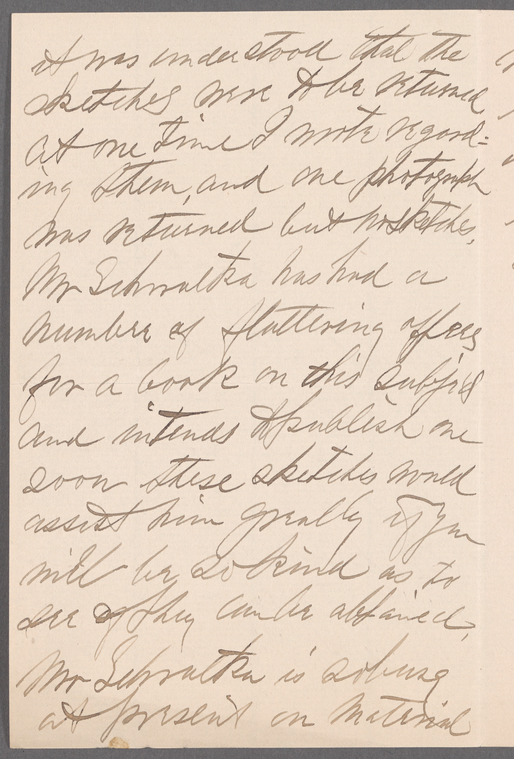 it was understood that the
sketches were to be returned
at one time I wrote regard=
ing them, and one photograph
was returned but no sketches.
Mr Schwatka has had a
number of flattering offers
for a book on this subject
and intends to publish one
soon these sketches would
assist him greatly if you
will be so kind as to
see if they can be obtained.
Mr Schwatka is so busy
at present on material